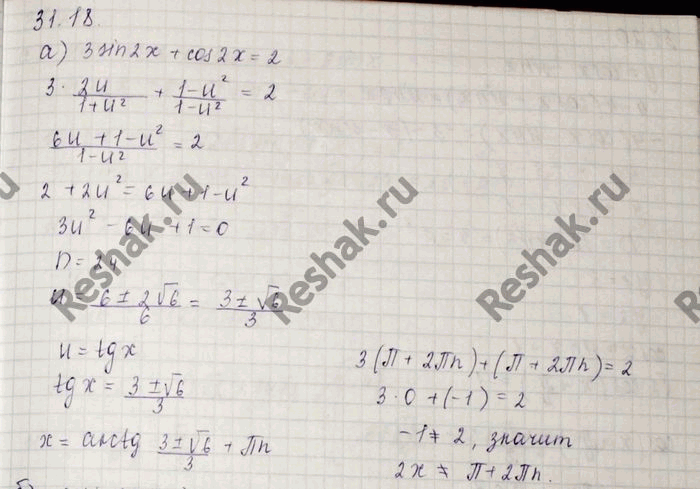 31.18.
а) 3 sin2x + cos2x = 2
3 · 2u/1+u² + 1-u²/1-u² = 2
6u + 1-u²/1-u² = 2
2 + 2u² = 6u + 1-u²
3u² - 6u + 1 = 0
D = 24
u = 6 ± 2√6/6 = 3 ± √6/3
u = tg x
tg x = 3 ± √6/3
x = arctg 3 ± √6/3 + Пn
3(П + 2Пn) + (П + 2Пn) = 2
3 · 0 + (-1) = 2
-1 ≠ 2, значит
2x ≠ П + 2Пn.
б)
Reshak.ru
Reshak.ru